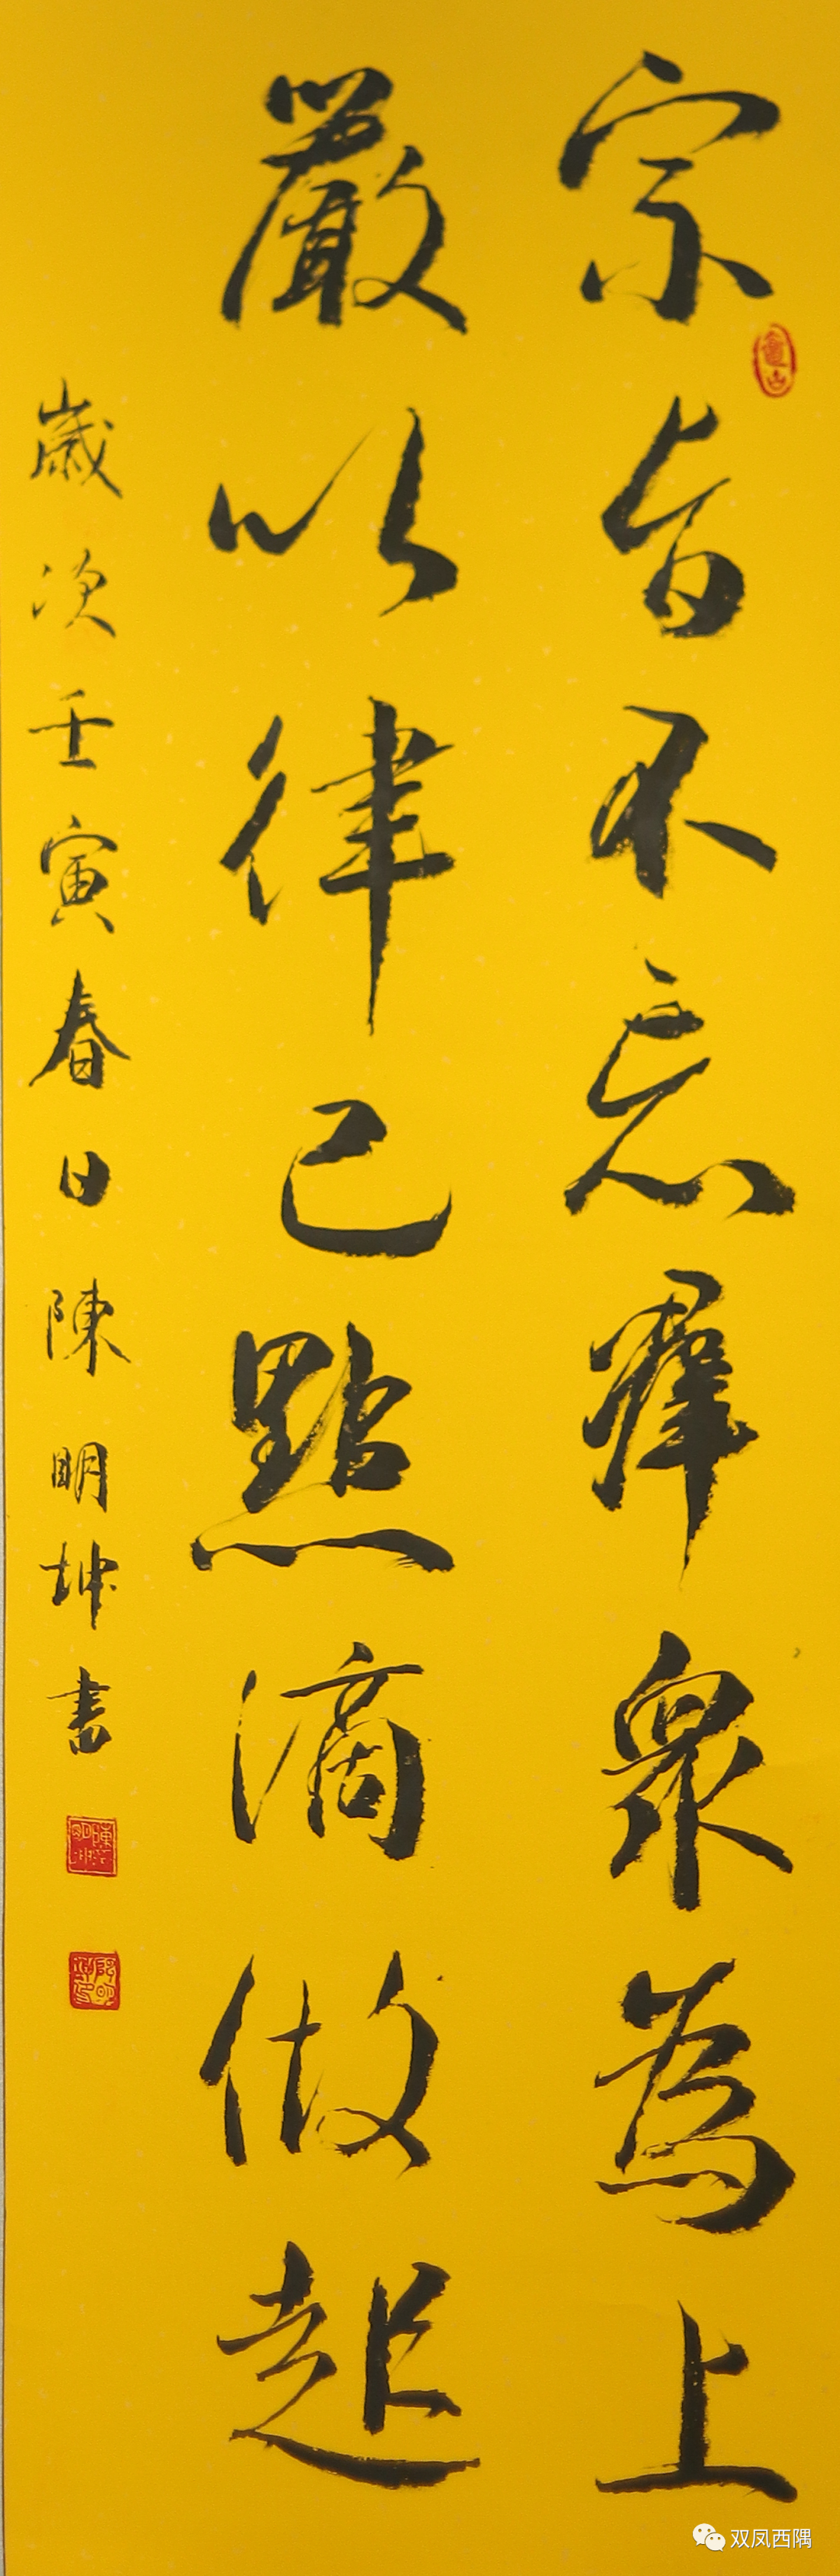 宗旨不忘群衆為上
嚴以律己點滴做起
歲次壬寅春日陳明坤书
双凤西隅